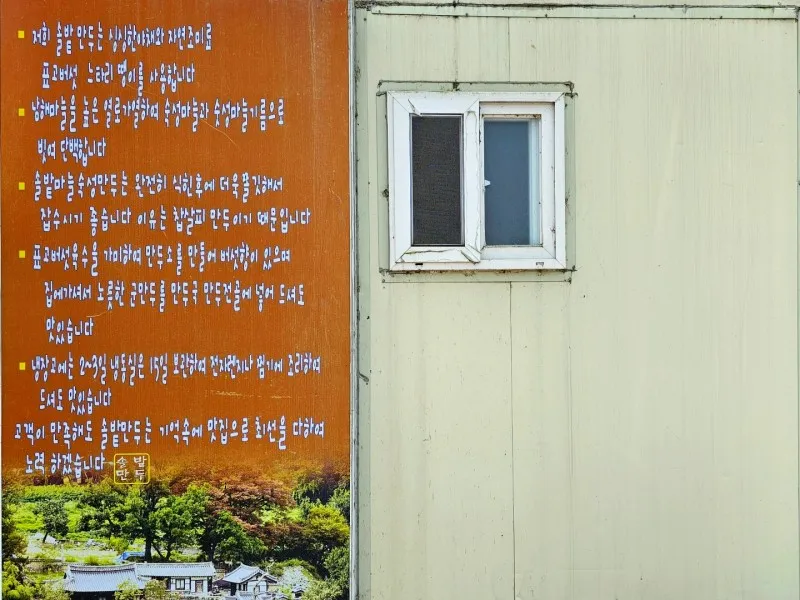 저희 솔밭 만두는 싱싱한야채와 자연조미료
표고버섯 느타리 팽이를 사용합니다
남해마늘을 높은 열로가열하여 숙성마늘과 숙성마늘기름으로
빚여 단백합니다
솔밭마늘숙성만두는 완전히 식힌후에 더욱쫄깃해서
잡수시기 좋습니다 이유는 찹쌀피 만두이기 때문입니다
표고버섯육수을 가미하여 만두소를 만들어 버섯향이 있으며
집에가셔서 노릇한 군만두를 만두국 만두전골에 넣어 드셔도
맛있습니다
냉장고에는 2~3일 냉동실은 15일 보관하여 전자렌지나 찜기에 조리하여
드셔도 맛있습니다
고객이 만족해도 솔밭만두는 기억속에 맛집으로 최선을 다하여
노력 하겠습니다 솔밭만두